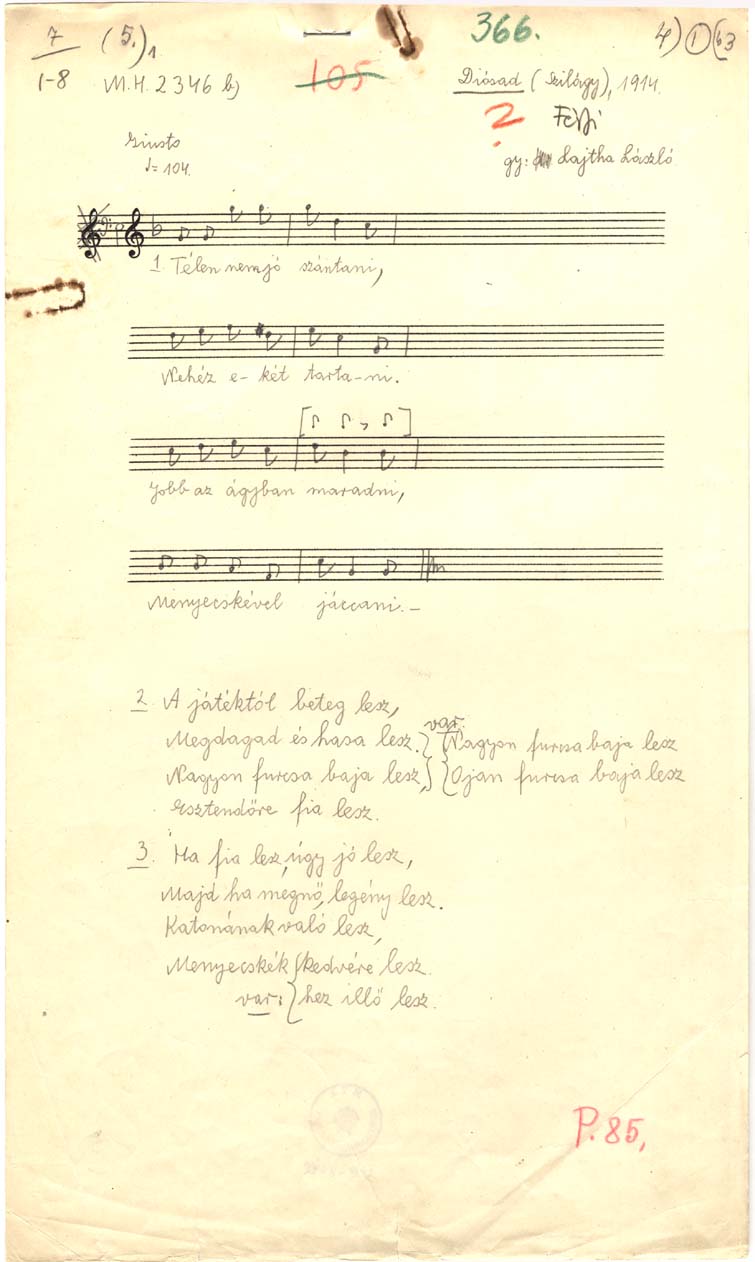 7 (5.)1 366. 4) 1 (63
1-8 M.H. 2346 b) 105 Diósad (Szilágy), 1914.
? Férfi
Giusto gy: Lajtha László
♩= 104.
1. Télen nem jó szántani,
Nehéz e-két tarta-ni.
Jobb az ágyban maradni,
Menyecskével jáccani.-
2. A játéktól beteg lesz,
var.
Megdagad és hasa lesz. Nagyon furcsa baja lesz
Nagyon furcsa baja lesz, Ojan furcsa baja lesz
Esztendőre fia lesz.
3. Ha fia lesz, úgy jó lesz,
Majd ha megnő, legény lesz.
Katonának való lesz,
Menyecskék kedvére lesz.
var: hez illő lesz.
P. 85,